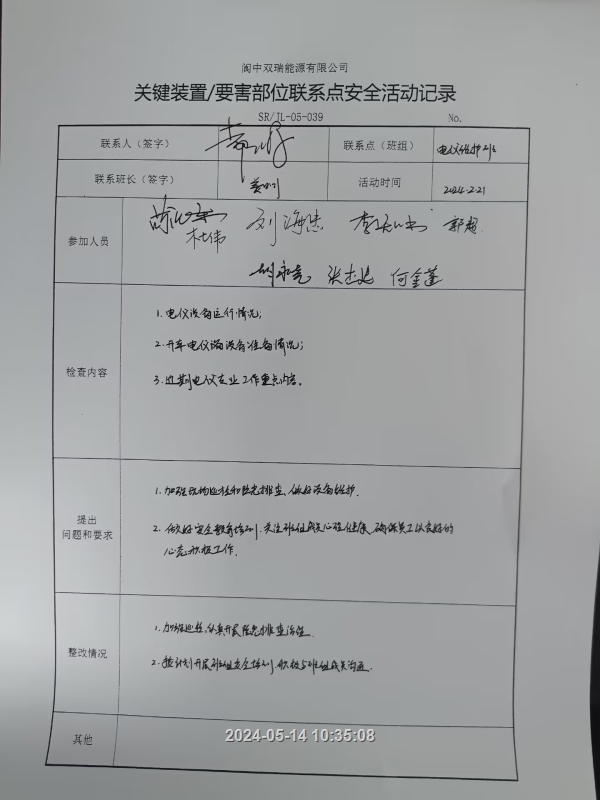 阆中双瑞能源有限公司
关键装置/要害部位联系点安全活动记录
SR/JL-05-039 No.
联系人（签字） 联系点（班组） 电仪维护班
联系班长（签字） 活动时间 2024.2.21
参加人员 刘海忠 郭超
杜伟
张志远 何金莲
检查内容
1. 电仪设备运行情况；
2. 开车电仪设备准备情况；
3. 近期电仪专业工作重点内容。
提出
问题和要求
1. 加强现场巡检和隐患排查，做好设备维护.
2. 做好安全教育培训，关注班组成员心理健康，确保员工以良好的
心态积极工作.
整改情况
1. 加强巡检，认真开展隐患排查治理.
2. 按计划开展班组安全培训，积极与班组成员沟通.
其他
2024-05-14 10:35:08